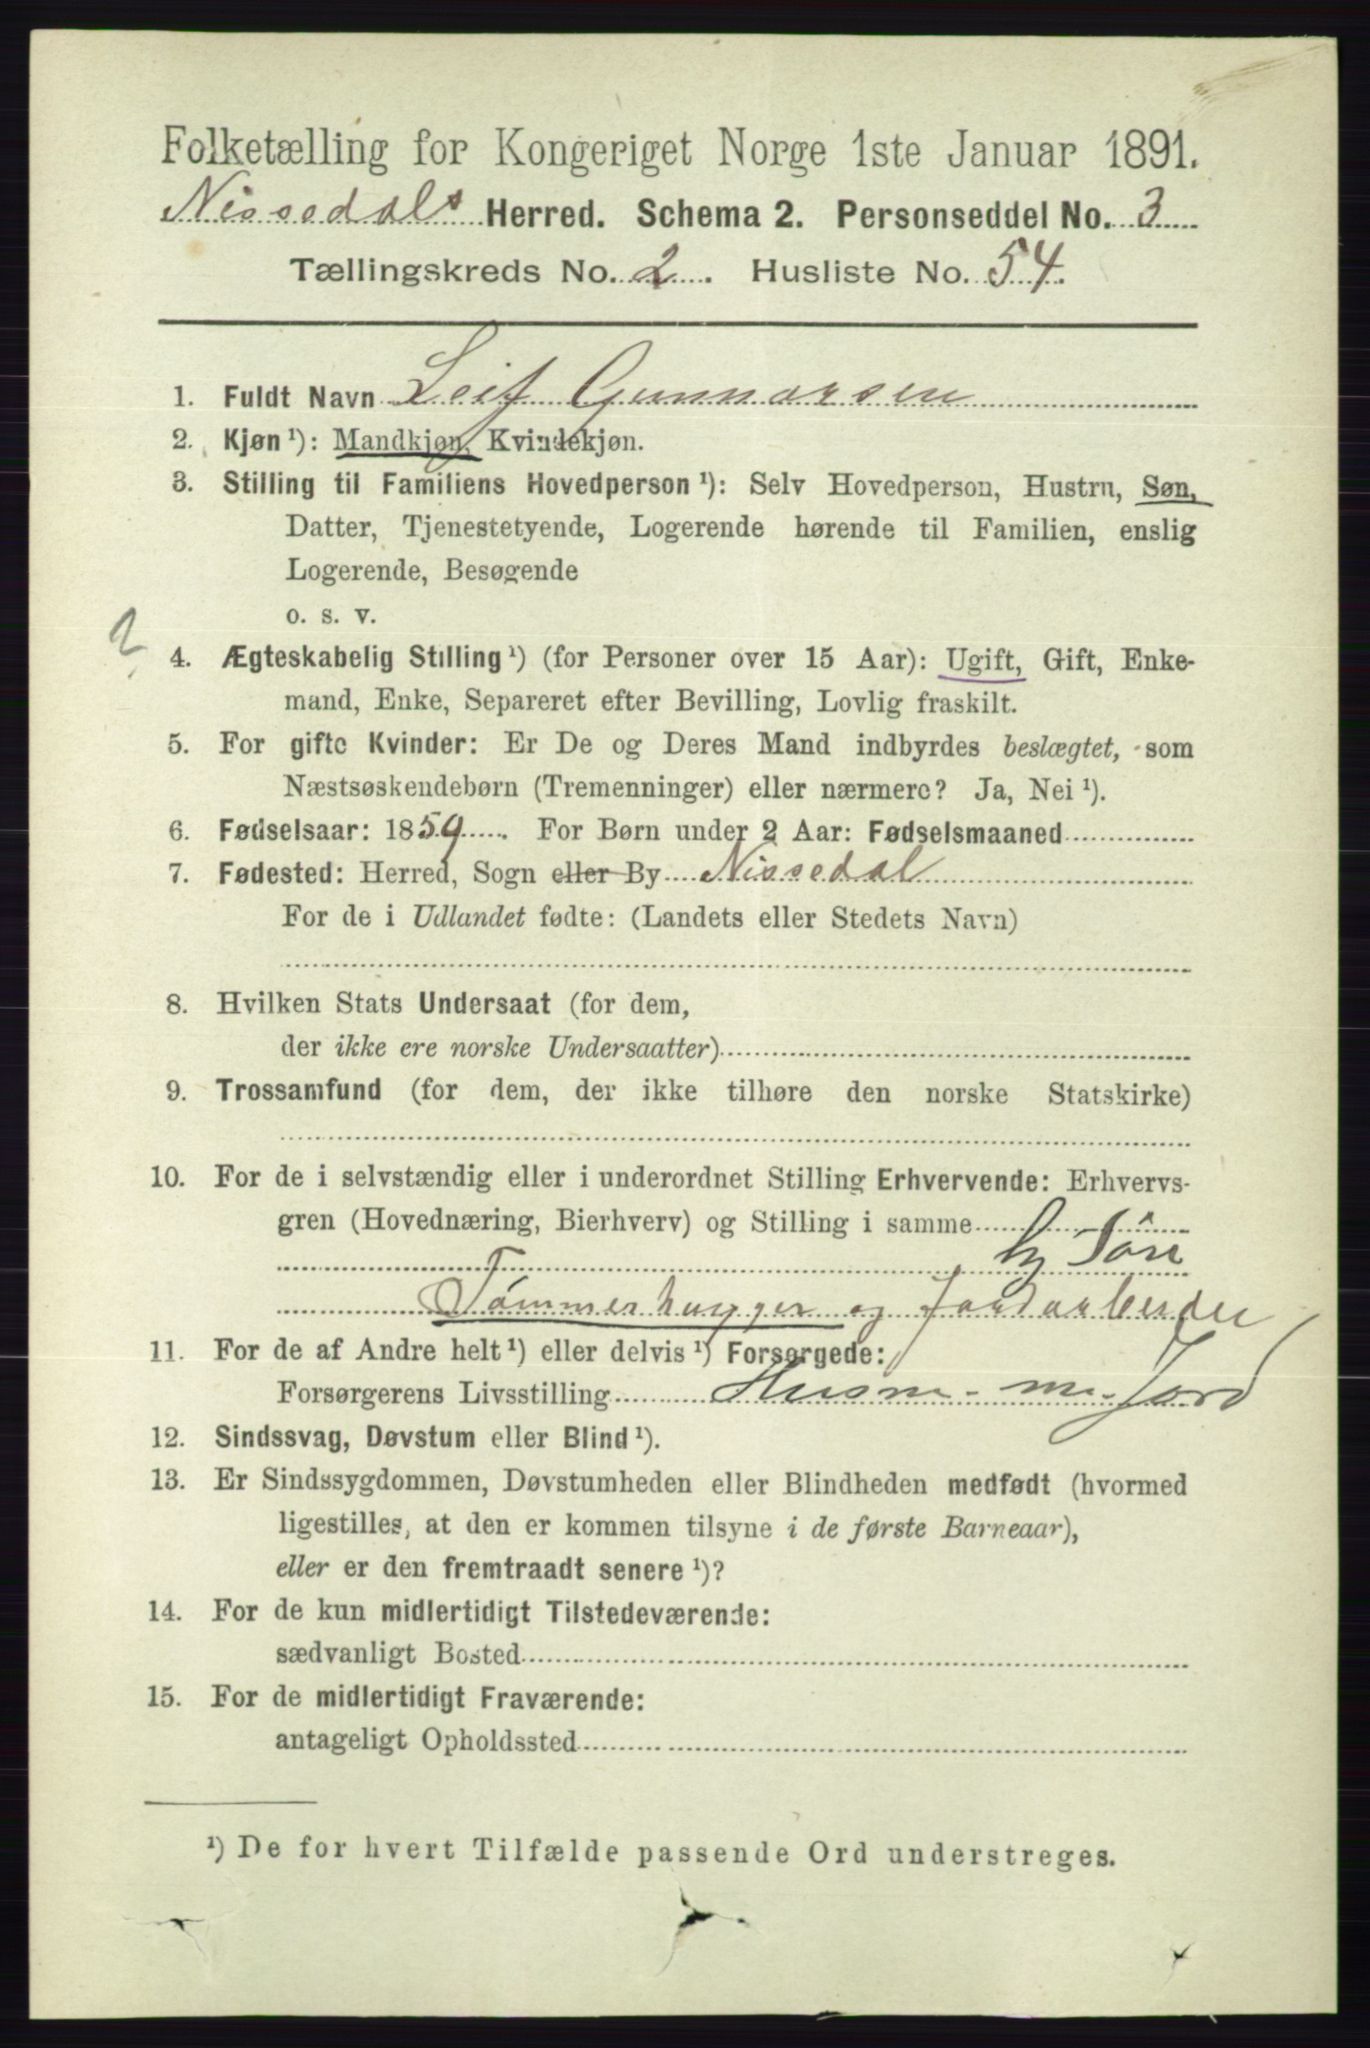 Folketælling for Kongeriget Norge 1ste Januar 1891.
Nissedals Herred. Schema 2. Personseddel No. 3
Tællingskreds No. 2. Husliste No. 54.
1. Fuldt Navn Leif Gunnarsen
2. Kjøn ¹): Mandkjøn, Kvindekjøn.
3. Stilling til Familiens Hovedperson ¹): Selv Hovedperson, Hustru, Søn,
Datter, Tjenestetyende, Logerende hørende til Familien, enslig
Logerende, Besøgende
o. s. v.
2
4. Ægteskabelig Stilling ¹) (for Personer over 15 Aar): Ugift, Gift, Enke-
mand, Enke, Separeret efter Bevilling, Lovlig fraskilt.
5. For gifte Kvinder: Er De og Deres Mand indbyrdes beslægtet, som
Næstsøskendebørn (Tremenninger) eller nærmere? Ja, Nei ¹).
6. Fødselsaar: 1859. For Børn under 2 Aar: Fødselsmaaned
7. Fødested: Herred, Sogn eller By Nissedal
For de i Udlandet fødte: (Landets eller Stedets Navn)
8. Hvilken Stats Undersaat (for dem,
der ikke ere norske Undersaatter)
9. Trossamfund (for dem, der ikke tilhøre den norske Statskirke)
10. For de i selvstændig eller i underordnet Stilling Erhvervende: Erhvervs-
gren (Hovednæring, Bierhverv) og Stilling i samme
Tømmerhugger og Jordarbeider
11. For de af Andre helt ¹) eller delvis ¹) Forsørgede:
Forsørgerens Livsstilling Husm. m. Jord
12. Sindssvag, Døvstum eller Blind ¹).
13. Er Sindssygdommen, Døvstumheden eller Blindheden medfødt (hvormed
ligestilles, at den er kommen tilsyne i de første Barneaar),
eller er den fremtraadt senere ¹)?
14. For de kun midlertidigt Tilstedeværende:
sædvanligt Bosted
15. For de midlertidigt Fraværende:
antageligt Opholdssted
¹) De for hvert Tilfælde passende Ord understreges.